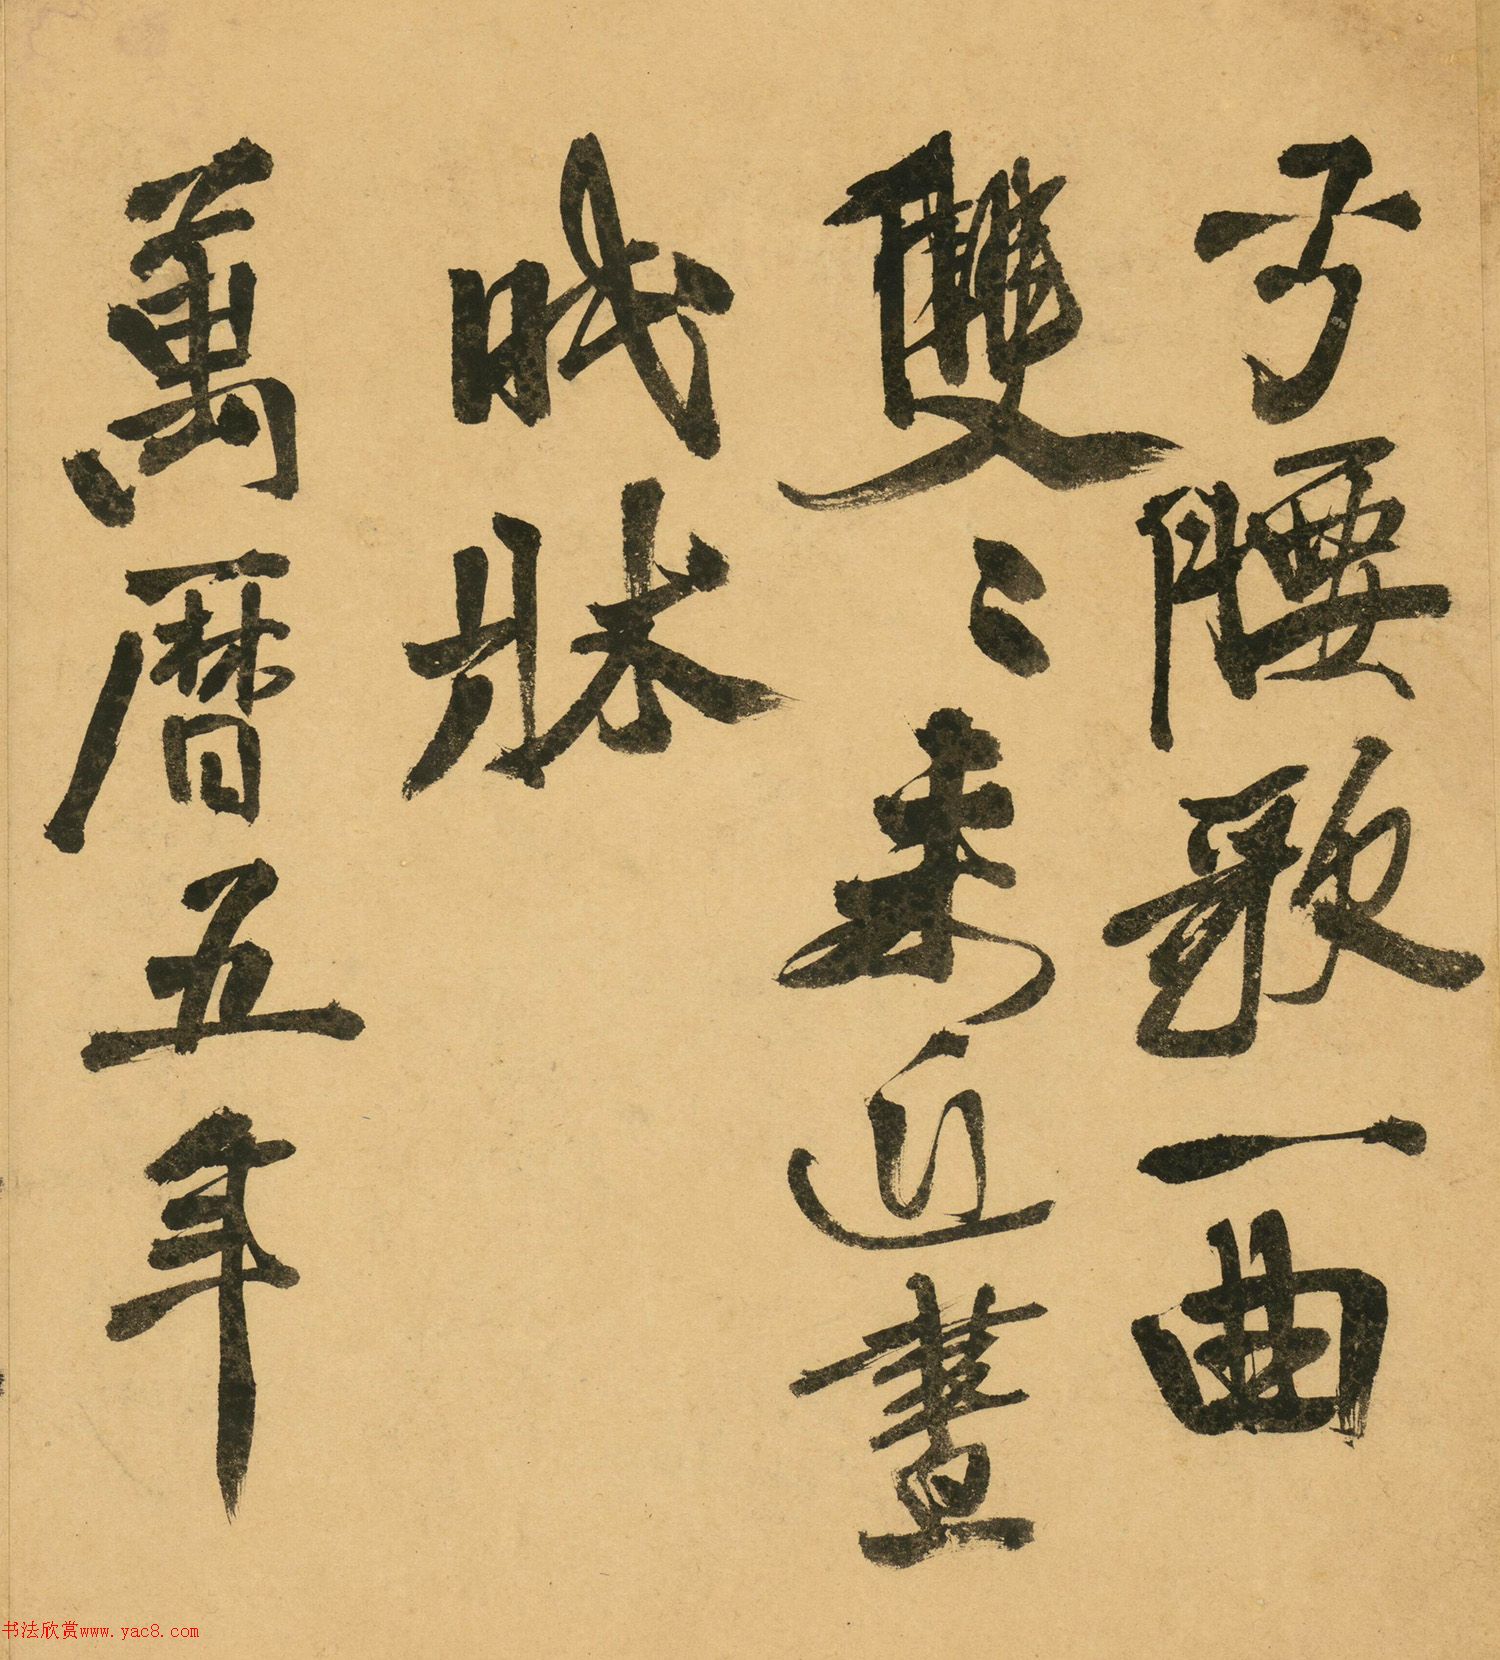 子腰歌一曲
雙〻來近晝
眠牀
萬曆五年
书法欣赏www.yac8.com